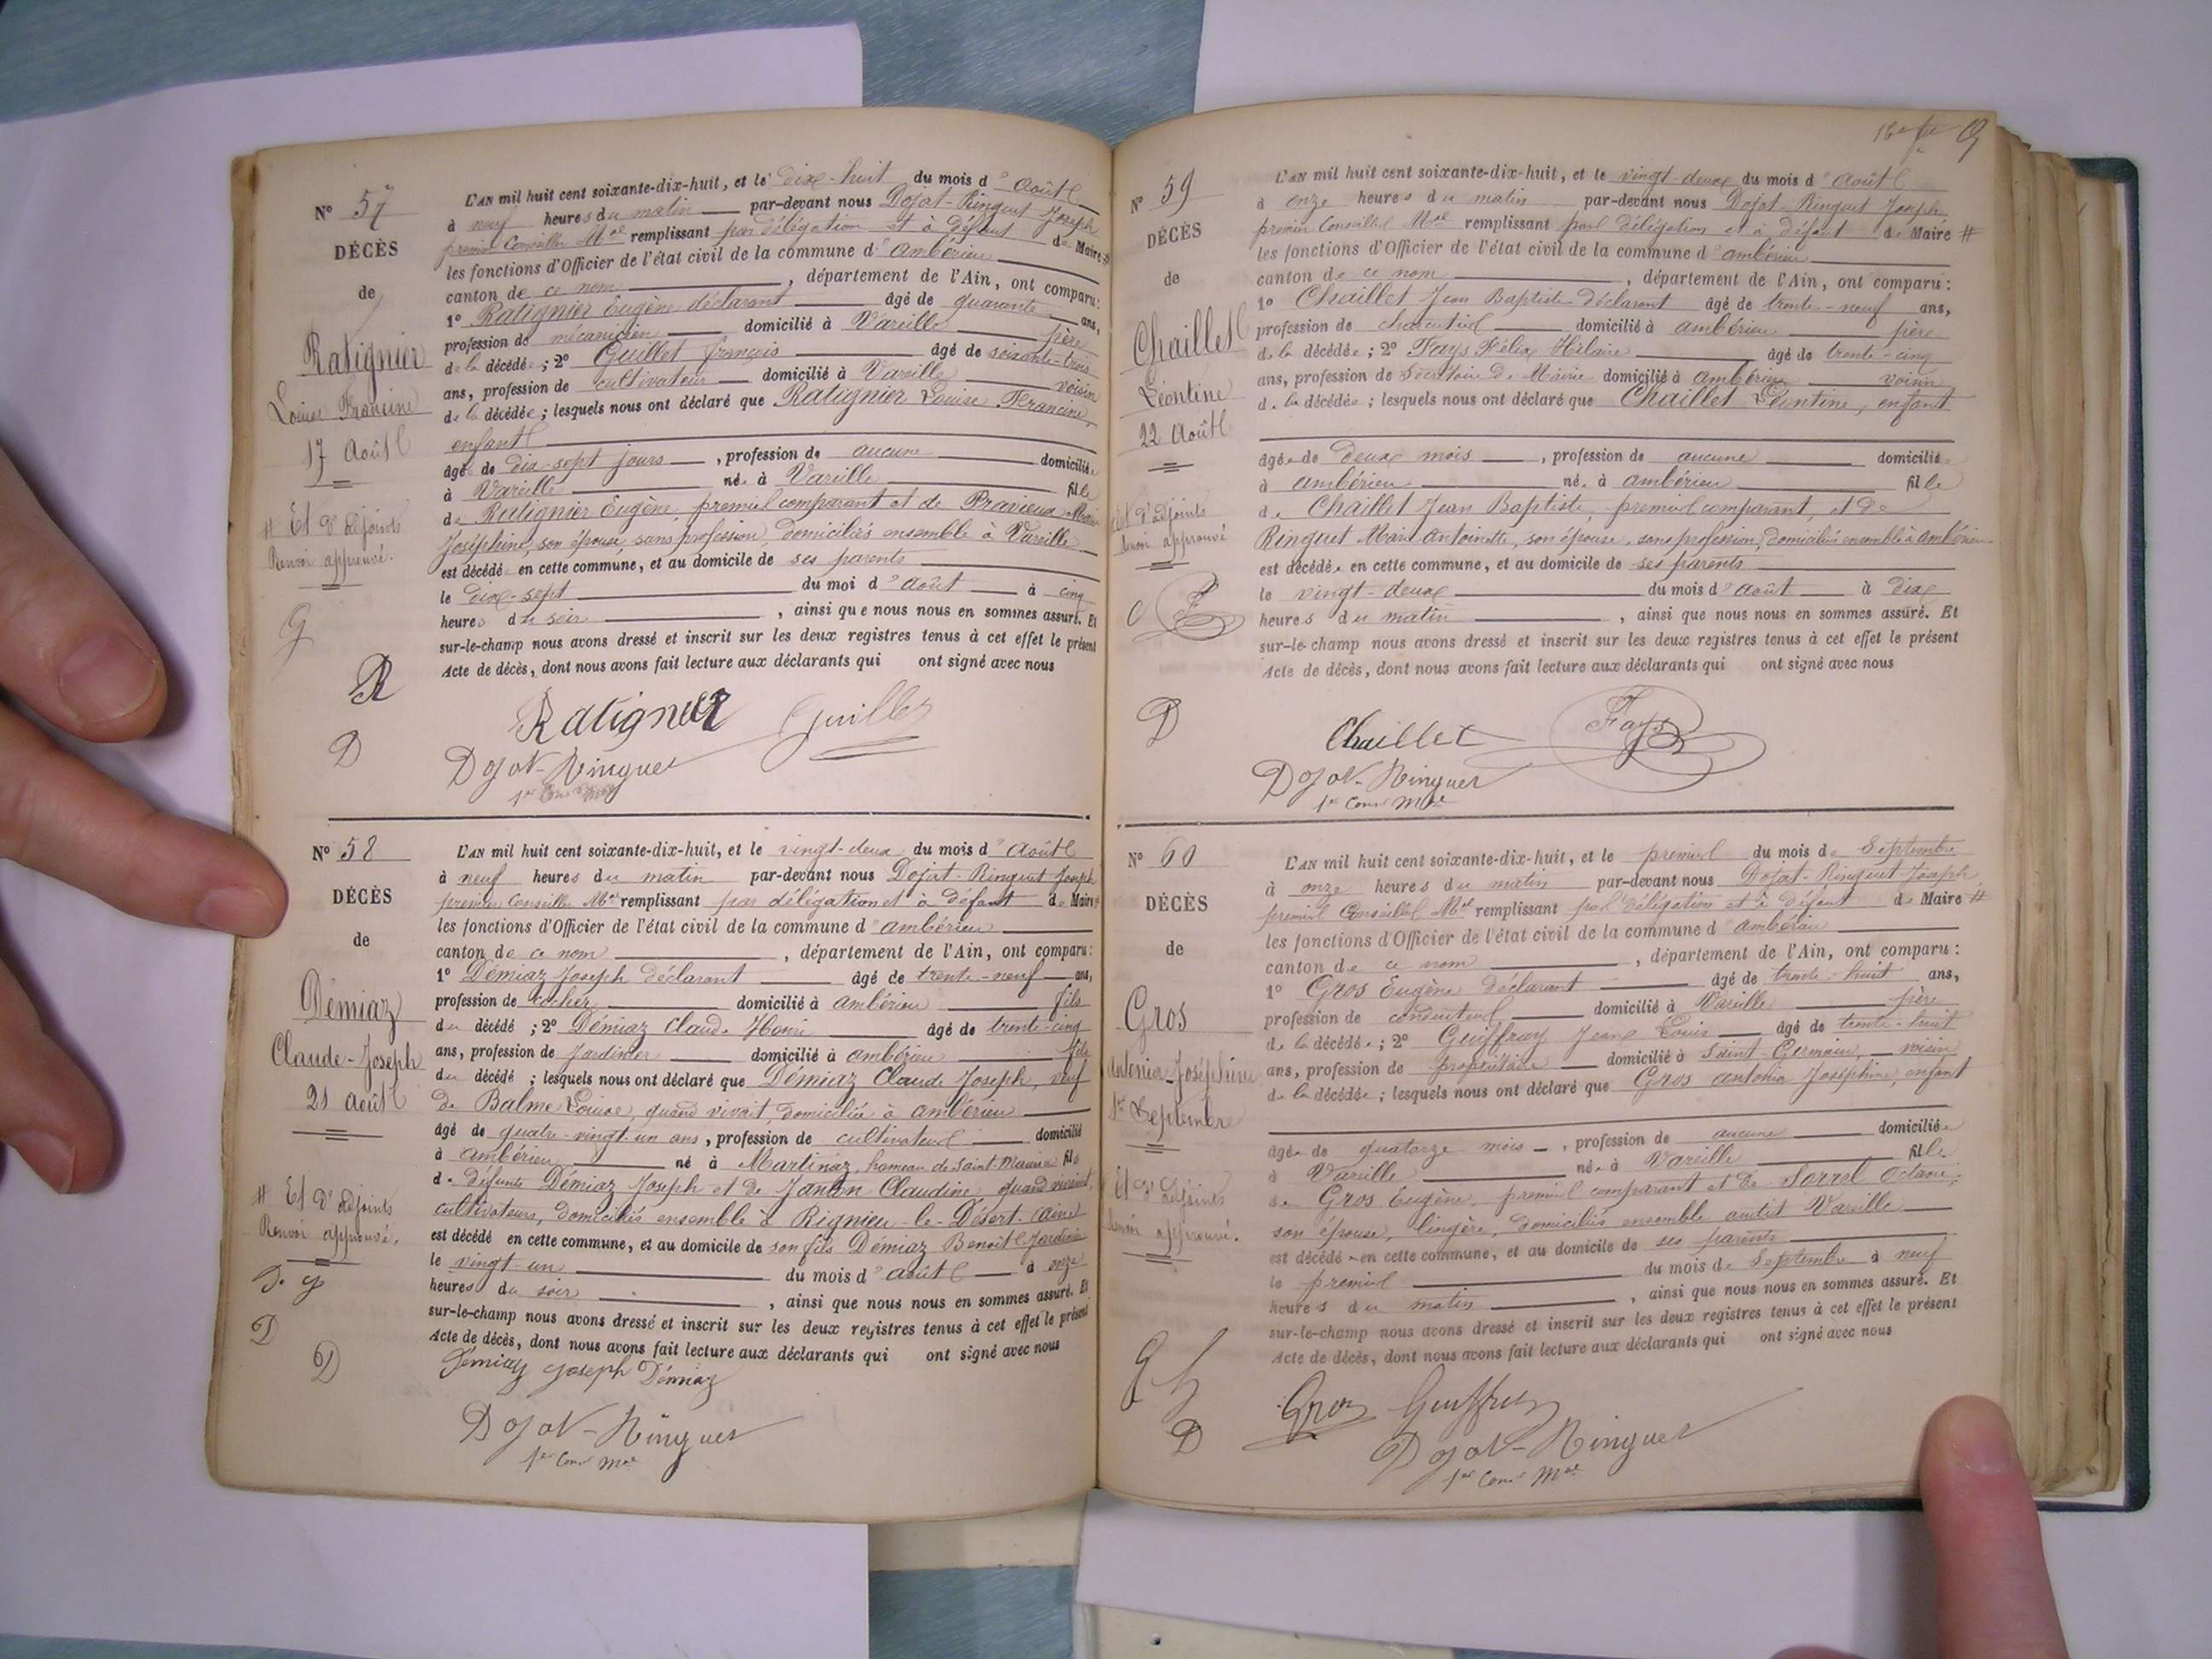 N° 57
DÉCÈS
de
Ratignier
Louise Francine
17 Août
# Et d'adjoints
Renvoi approuvé.
L'AN mil huit cent soixante-dix-huit, et le dix-huit du mois d'Août
à neuf heures du matin par-devant nous Dojat-Ringuet Joseph
premier Conseiller Mal remplissant par délégation et à défaut de Maire #
les fonctions d'Officier de l'état civil de la commune d'ambérieu
canton de ce nom, département de l'Ain, ont comparu:
1° Ratignier Eugène déclarant âgé de quarante ans,
profession de mécanicien domicilié à Vareille père
de la décédée; 2° Guillet françois âgé de soixante-trois
ans, profession de cultivateur domicilié à Vareille voisin
de la décédée; lesquels nous ont déclaré que Ratignier Louise Francine,
enfant
âgé de dix-sept jours, profession de aucune domiciliée
à Vareille née à Vareille fille
de Ratignier Eugène, premier comparant et de Pravieux Marie
Joséphine, son épouse, sans profession, domiciliés ensemble à Vareille
est décédé en cette commune, et au domicile de ses parents
le dix-sept du moi d'août à cinq
heures du soir, ainsi que nous nous en sommes assuré. Et
sur-le-champ nous avons dressé et inscrit sur les deux registres tenus à cet effet le présent
Acte de décès, dont nous avons fait lecture aux déclarants qui ont signé avec nous
R
D
Ratignier Guillet
Dojat-Ringuet
1er Cons Mal
N° 58
DÉCÈS
de
Démiaz
Claude-Joseph
21 Août
# Et d'adjoints
Renvoi approuvé.
D. J
D
D
L'AN mil huit cent soixante-dix-huit, et le vingt-deux du mois d'Août
à neuf heures du matin par-devant nous Dojat-Ringuet Joseph
premier Conseiller Mal remplissant par délégation et à défaut de Maire #
les fonctions d'Officier de l'état civil de la commune d'ambérieu
canton de ce nom, département de l'Ain, ont comparu:
1° Démiaz Joseph déclarant âgé de trente-neuf ans,
profession de cocher domicilié à ambérieu fils
du décédé; 2° Démiaz Claude Henri âgé de trente-cinq
ans, profession de Jardinier domicilié à ambérieu fils
du décédé; lesquels nous ont déclaré que Démiaz Claude Joseph, veuf
de Balme Louise, quand vivait, domiciliée à ambérieu
âgé de quatre-vingt-un ans, profession de cultivateur domicilié
à ambérieu né à Martinaz, hameau de Saint-Maurice fils
de défunts Démiaz Joseph et de Janton Claudine, quand vivaient,
cultivateurs, domiciliés ensemble à Rignieu-le-Désert (Ain)
est décédé en cette commune, et au domicile de son fils Démiaz Benoît Jardinier
le vingt-un du mois d'août à onze
heures du soir, ainsi que nous nous en sommes assuré. Et
sur-le-champ nous avons dressé et inscrit sur les deux registres tenus à cet effet le présent
Acte de décès, dont nous avons fait lecture aux déclarants qui ont signé avec nous
Démiaz Joseph Démiaz
Dojat-Ringuet
1er Cons Mal
N° 59
DÉCÈS
de
Chaillet
Léontine
22 Août
Et d'adjoints
Renvoi approuvé
L'AN mil huit cent soixante-dix-huit, et le vingt-deux du mois d'Août
à onze heures du matin par-devant nous Dojat-Ringuet Joseph
premier Conseiller Mal remplissant par délégation et à défaut de Maire #
les fonctions d'Officier de l'état civil de la commune d'ambérieu
canton de ce nom, département de l'Ain, ont comparu:
1° Chaillet Jean Baptiste déclarant âgé de trente-neuf ans,
profession de domicilié à ambérieu père
de la décédée; 2° Fays Félix Hilaire âgé de trente-cinq
ans, profession de Secrétaire de Mairie domicilié à Ambérieu voisin
de la décédée; lesquels nous ont déclaré que Chaillet Léontine, enfant
âgée de deux mois, profession de aucune domiciliée
à ambérieu née à ambérieu fille
de Chaillet Jean Baptiste, premier comparant, et de
Ringuet Marie Antoinette, son épouse, sans profession, domiciliés ensemble à ambérieu
est décédée en cette commune, et au domicile de ses parents
le vingt-deux du mois d'août à dix
heures du matin, ainsi que nous nous en sommes assuré. Et
sur-le-champ nous avons dressé et inscrit sur les deux registres tenus à cet effet le présent
Acte de décès, dont nous avons fait lecture aux déclarants qui ont signé avec nous
D
Chaillet Fays
Dojat-Ringuet
1er Cons Mal
N° 60
DÉCÈS
de
Gros
Antonia-Joséphine
1er Septembre
Et d'adjoints
Renvoi approuvé.
L'AN mil huit cent soixante-dix-huit, et le premier du mois de Septembre
à onze heures du matin par-devant nous Dojat-Ringuet Joseph
premier Conseiller Mal remplissant par délégation et à défaut de Maire #
les fonctions d'Officier de l'état civil de la commune d'ambérieu
canton de ce nom, département de l'Ain, ont comparu:
1° Gros Eugène déclarant âgé de trente-huit ans,
profession de conducteur domicilié à Vareille père
de la décédée; 2° Guiffray Jean Louis âgé de trente-huit
ans, profession de propriétaire domicilié à Saint-Germain, voisin
de la décédée; lesquels nous ont déclaré que Gros antonia Joséphine, enfant
âgée de quatorze mois, profession de aucune domiciliée
à Vareille née à Vareille fille
de Gros Eugène, premier comparant et de Sorrel Octavie,
son épouse, lingère, domiciliés ensemble audit Vareille
est décédée en cette commune, et au domicile de ses parents
le premier du mois de Septembre à neuf
heures du matin, ainsi que nous nous en sommes assuré. Et
sur-le-champ nous avons dressé et inscrit sur les deux registres tenus à cet effet le présent
Acte de décès, dont nous avons fait lecture aux déclarants qui ont signé avec nous
D
Gros Guiffray
Dojat-Ringuet
1er Cons Mal